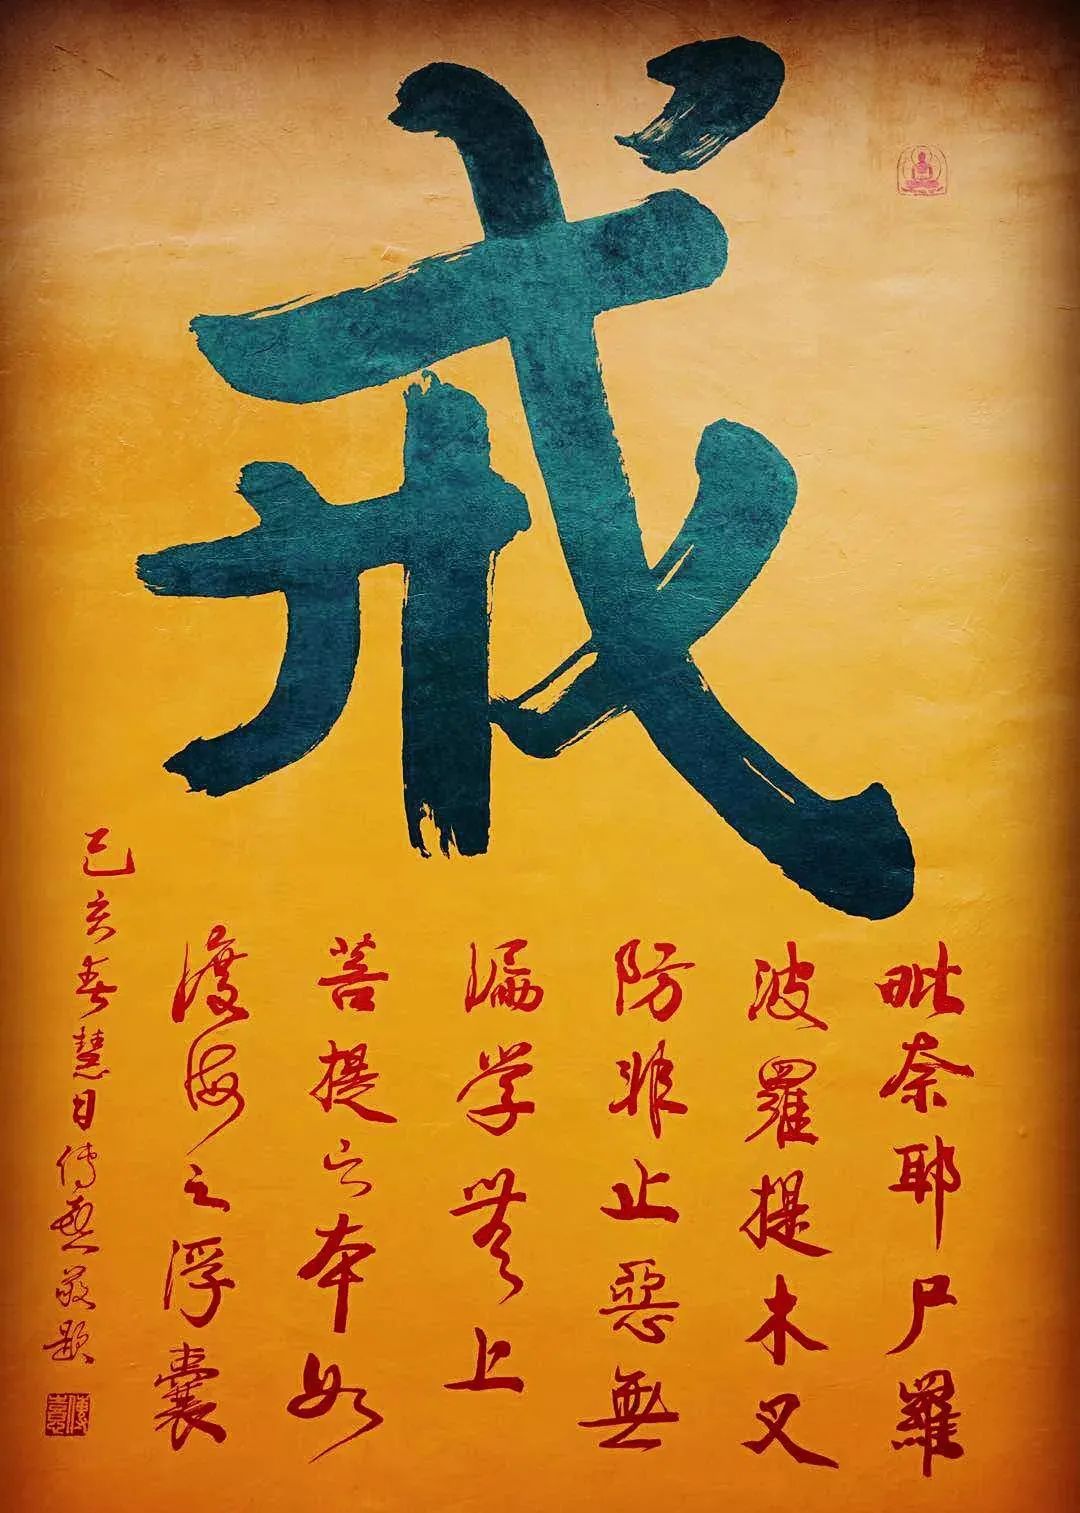 戒
毗奈耶尸羅
波羅提木叉
防非止惡無
漏学無上
菩提之本如
渡海之浮囊
己亥春慧日傳憙敬題
傳憙